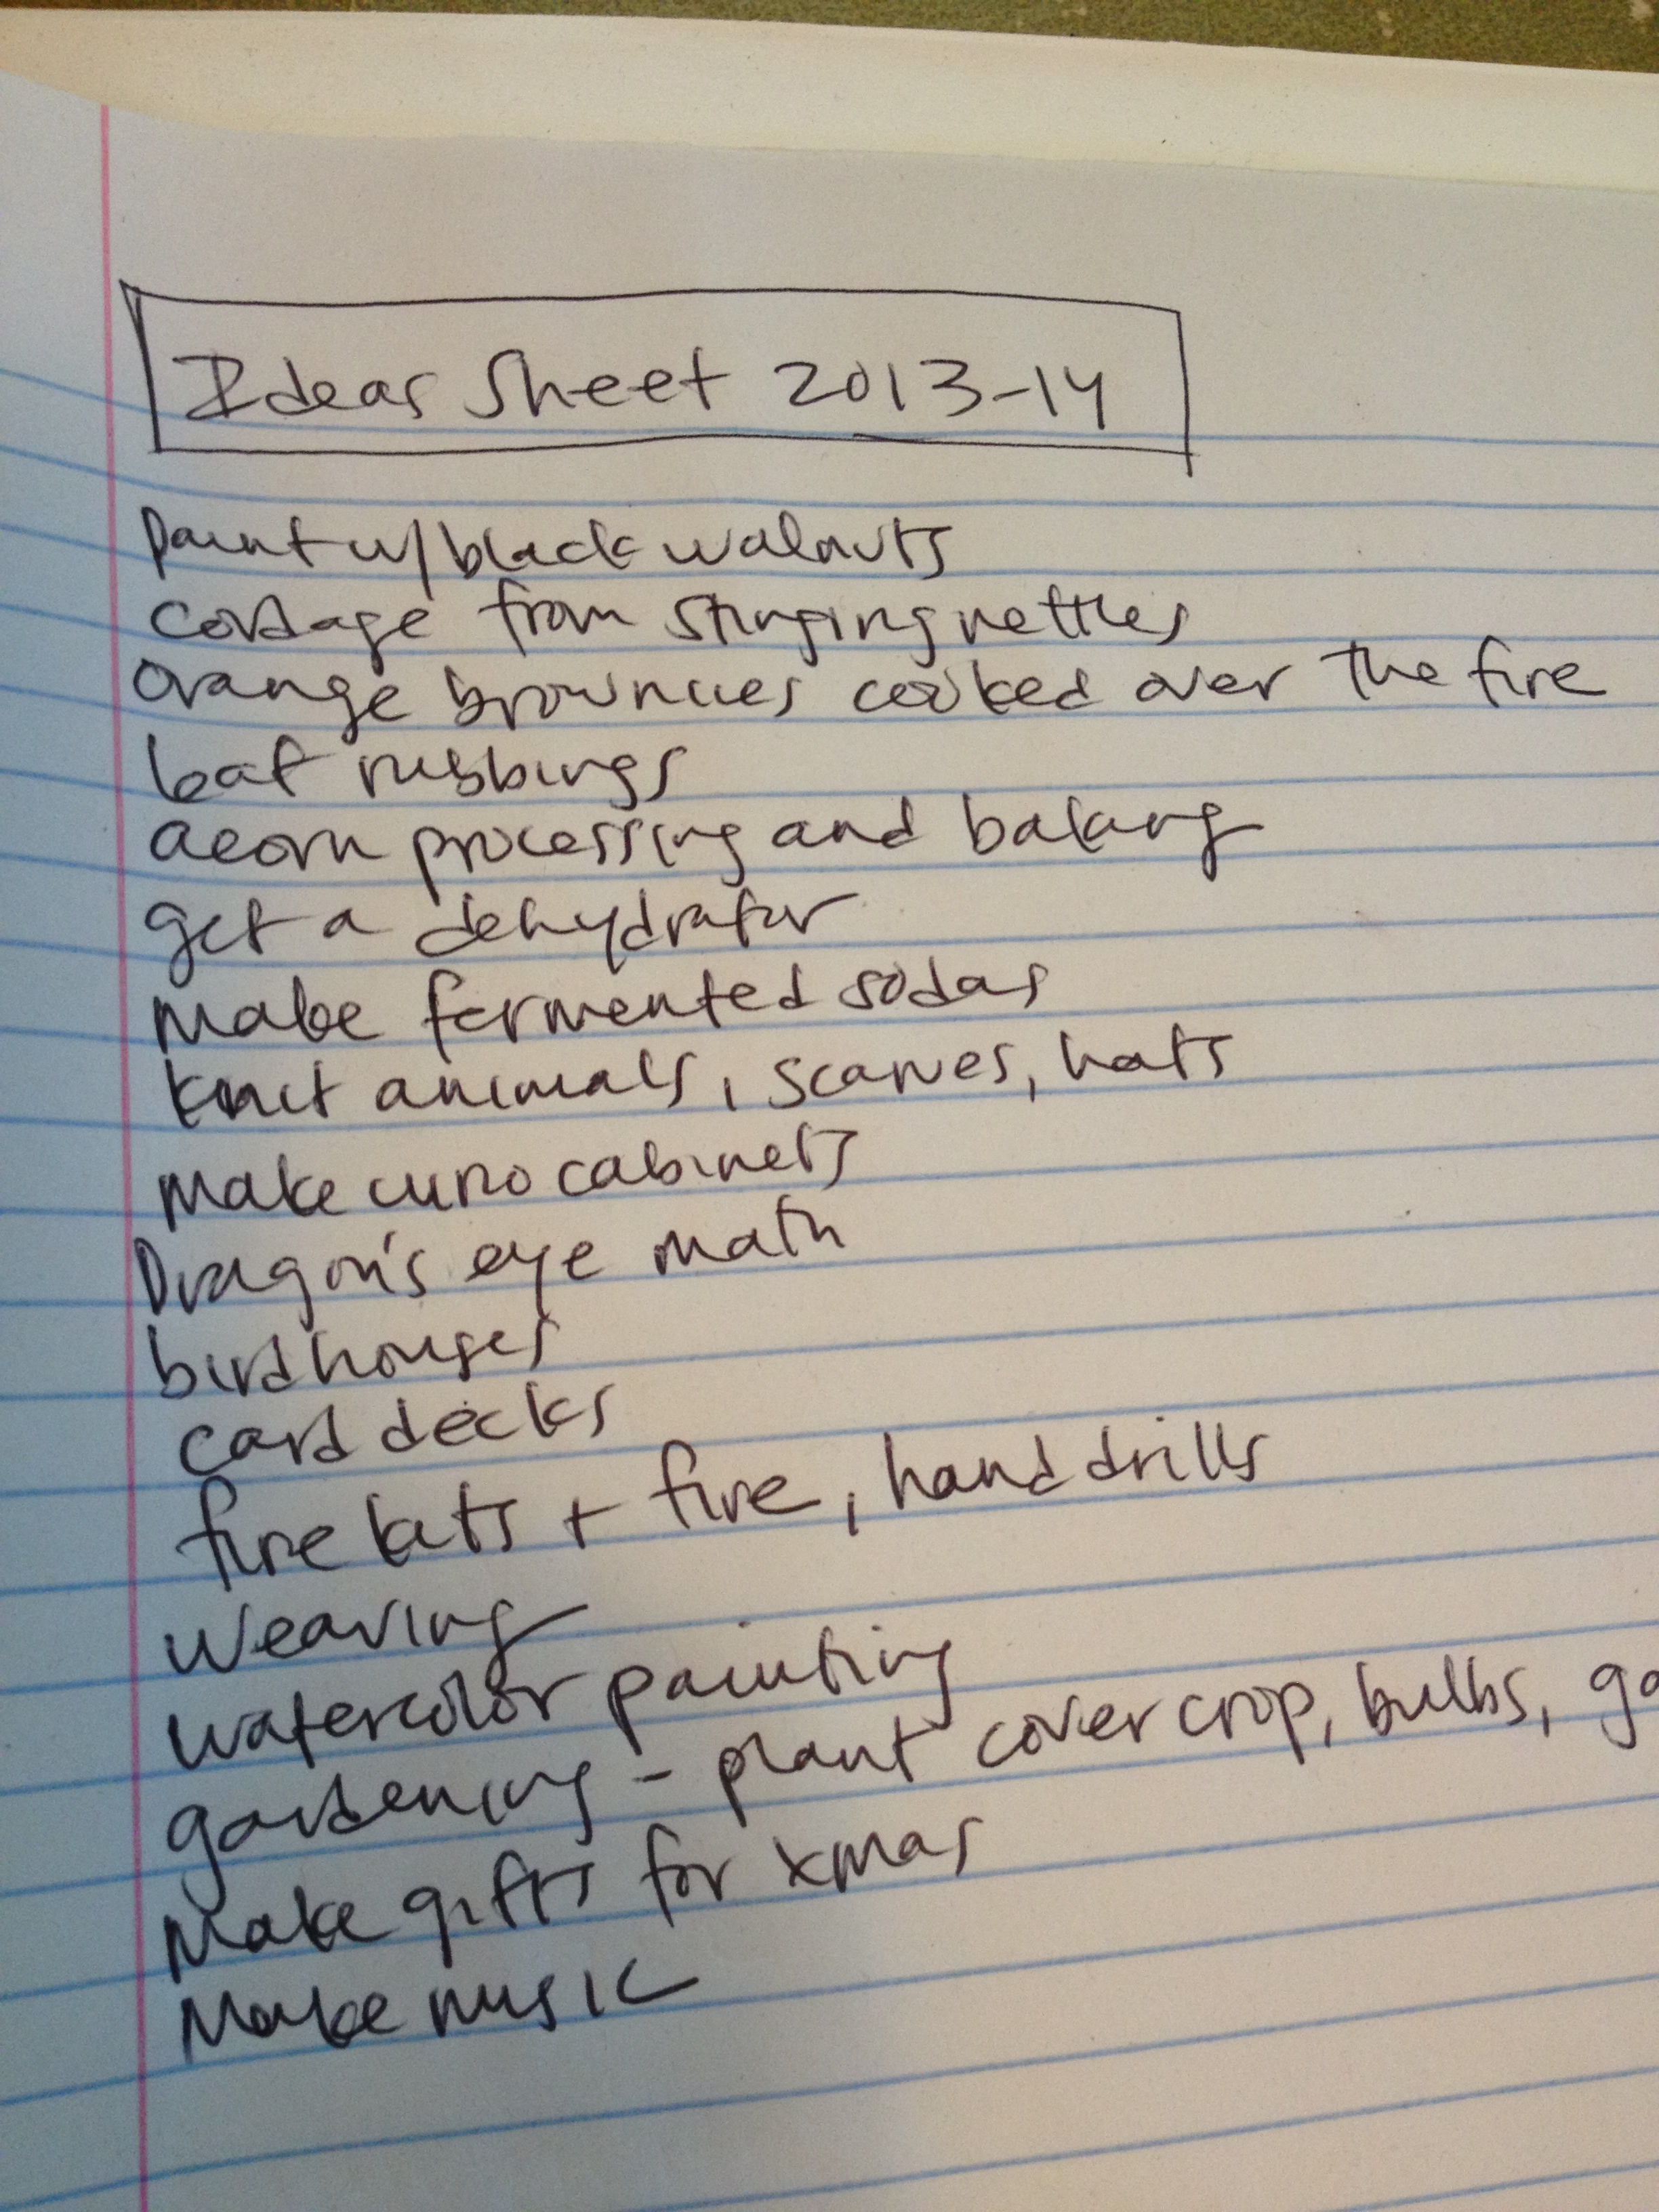 Ideas Sheet 2013-14
paint w/ black walnuts
cordage from stinging nettles
orange brownies cooked over the fire
leaf rubbings
acorn processing and baking
get a dehydrator
make fermented sodas
knit animals, scarves, hats
make curio cabinets
Dragon's eye math
birdhouses
card decks
fire kits + fire, hand drills
weaving
watercolor painting
gardening - plant cover crop, bulbs,
Make gifts for xmas
Make music